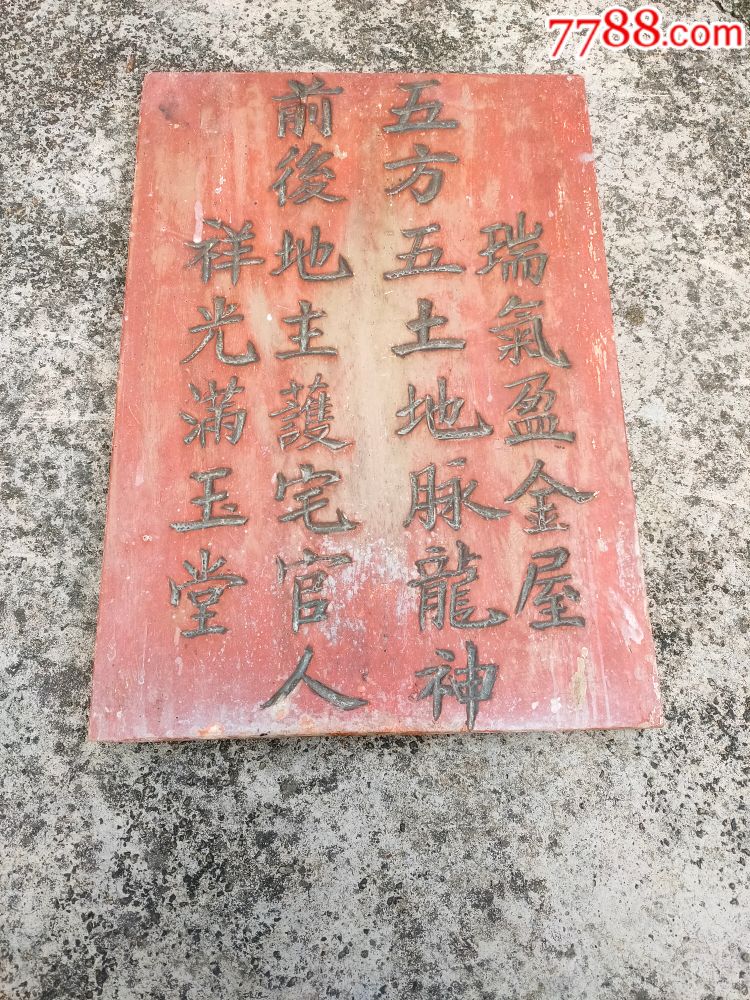 7788.com
瑞氣盈金屋
五方五土地脉龍神
前後地主護宅官人
祥光滿玉堂